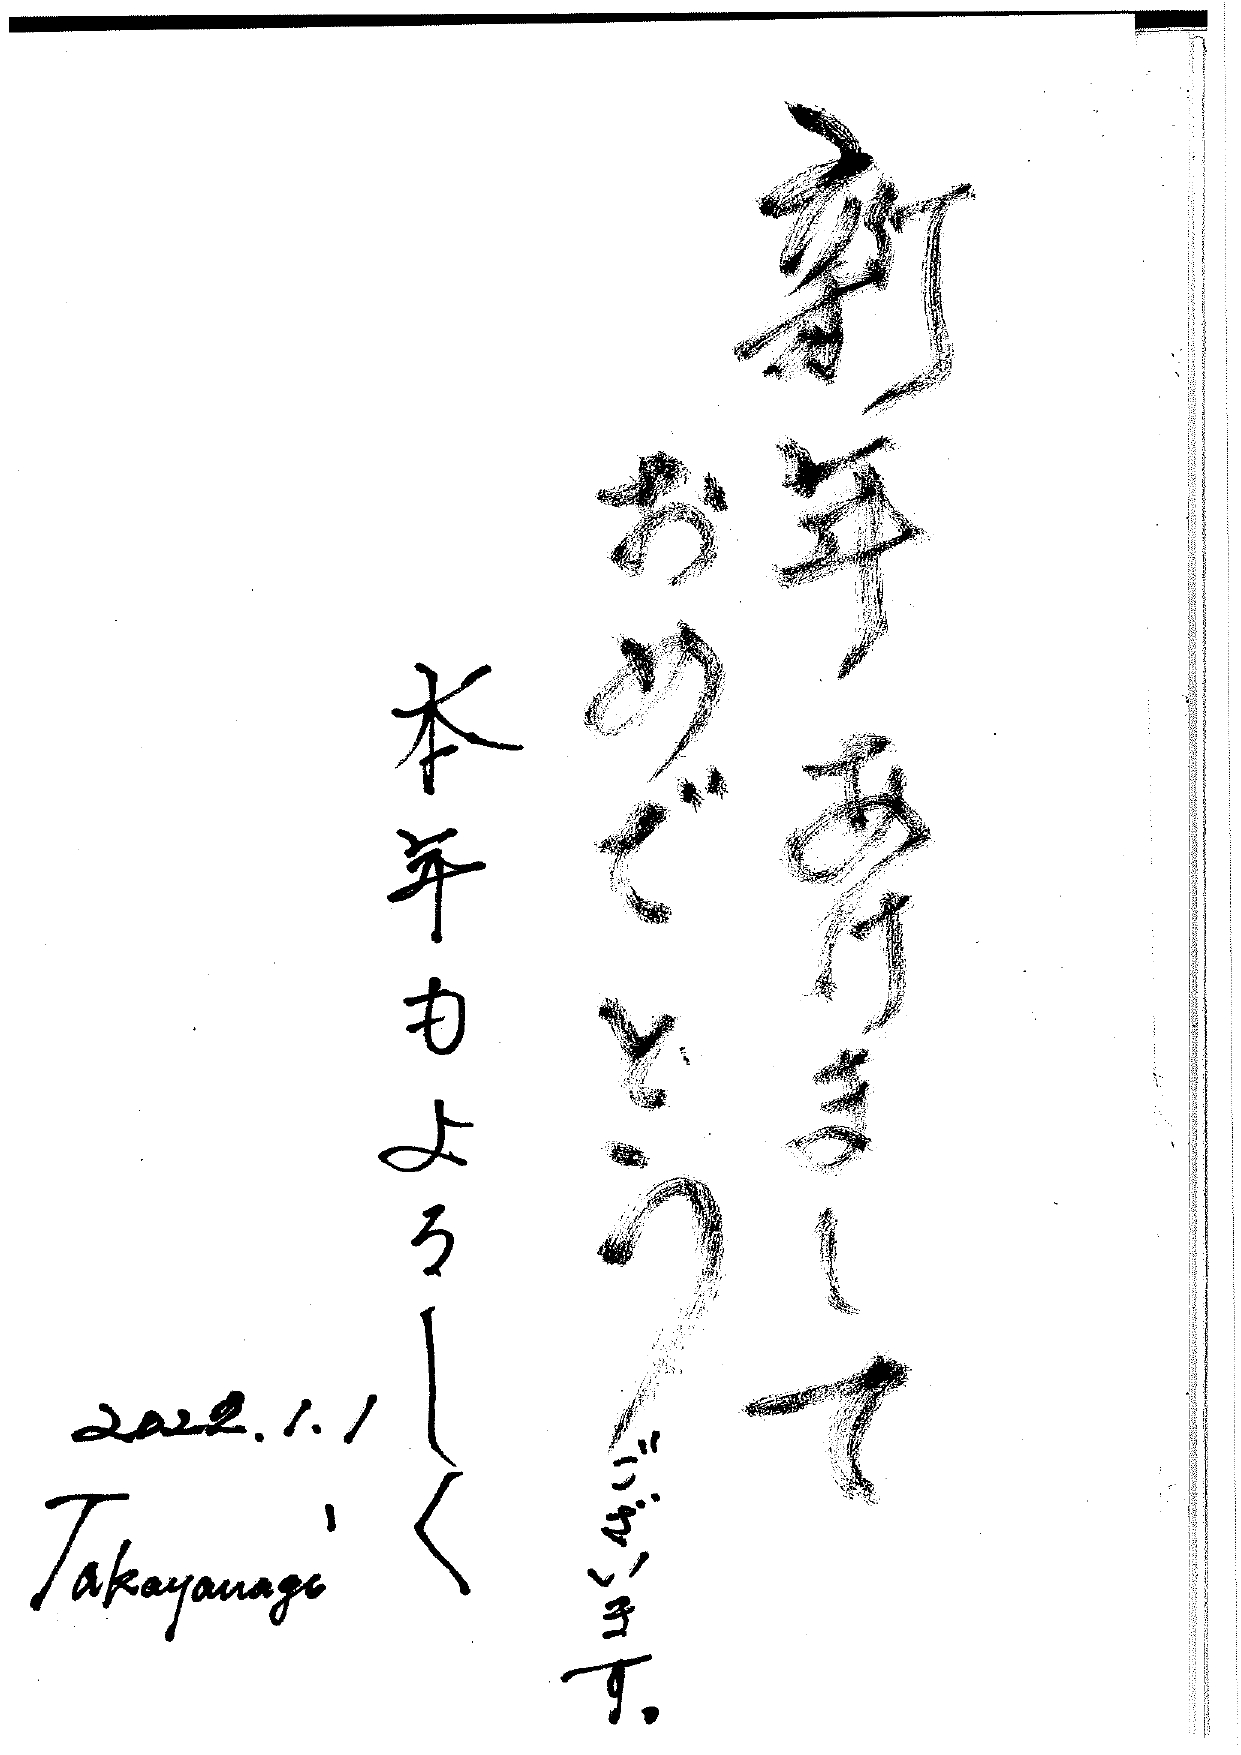 新年あけまして
おめでとうございます。
本年もよろしく
2022.1.1
Takayanagi